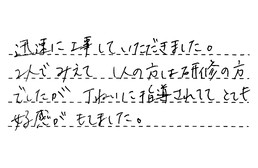 迅速に工事していただきました。
2人でみえて 1人の方は研修の方
でしたが ていねいに指導されてて とても
好感が もてました。